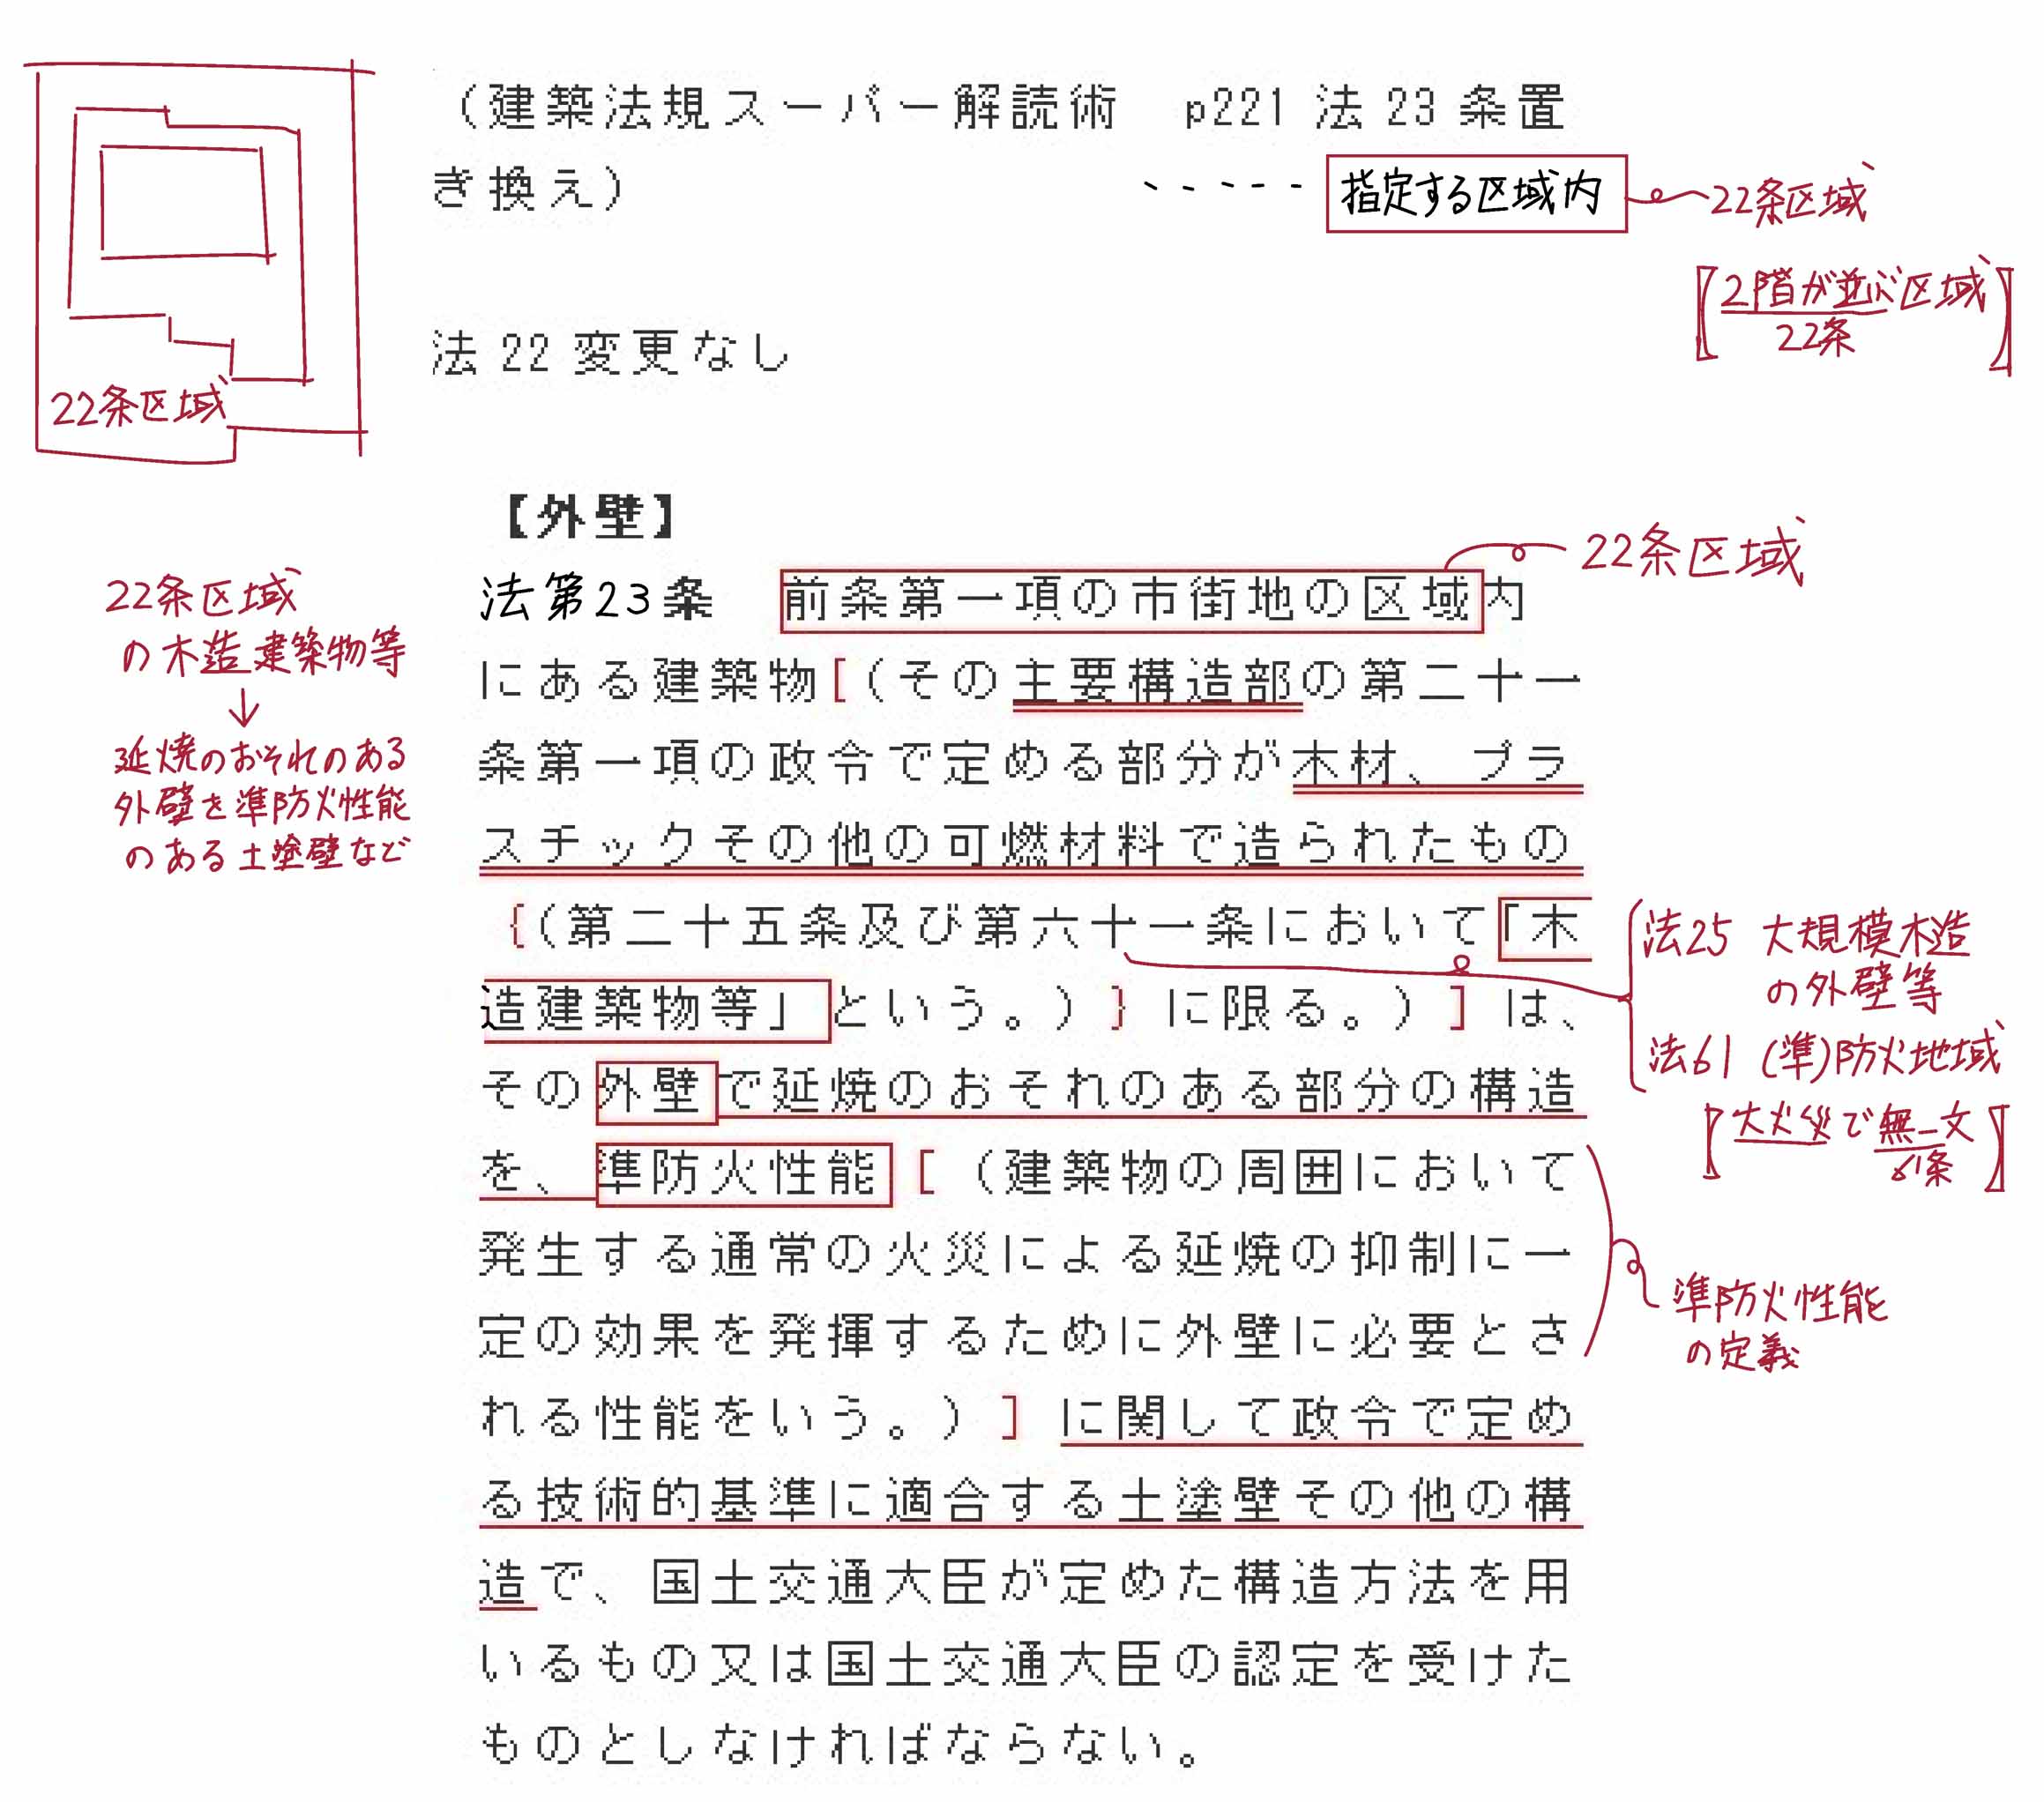 （建築法規スーパー解読術　p221 法 23 条置
ぎ換え）
指定する区域内
22条区域
【2階が並ぶ区域】
22条
法 22 変更なし
22条区域
【外壁】
22条区域
法第23条　前条第一項の市街地の区域内
にある建築物[（その主要構造部の第二十一
条第一項の政令で定める部分が木材、プラ
スチックその他の可燃材料で造られたもの
{（第二十五条及び第六十一条において「木
造建築物等」という。）} に限る。）] は、
その外壁で延焼のおそれのある部分の構造
を、準防火性能 [（建築物の周囲において
発生する通常の火災による延焼の抑制に一
定の効果を発揮するために外壁に必要とさ
れる性能をいう。）] に関して政令で定め
る技術的基準に適合する土塗壁その他の構
造で、国土交通大臣が定めた構造方法を用
いるもの又は国土交通大臣の認定を受けた
ものとしなければならない。
22条区域
の木造建築物等
↓
延焼のおそれのある
外壁を準防火性能
のある土塗壁など
法25 大規模木造
の外壁等
法61 (準)防火地域
【大火災で無一文】
61条
準防火性能
の定義